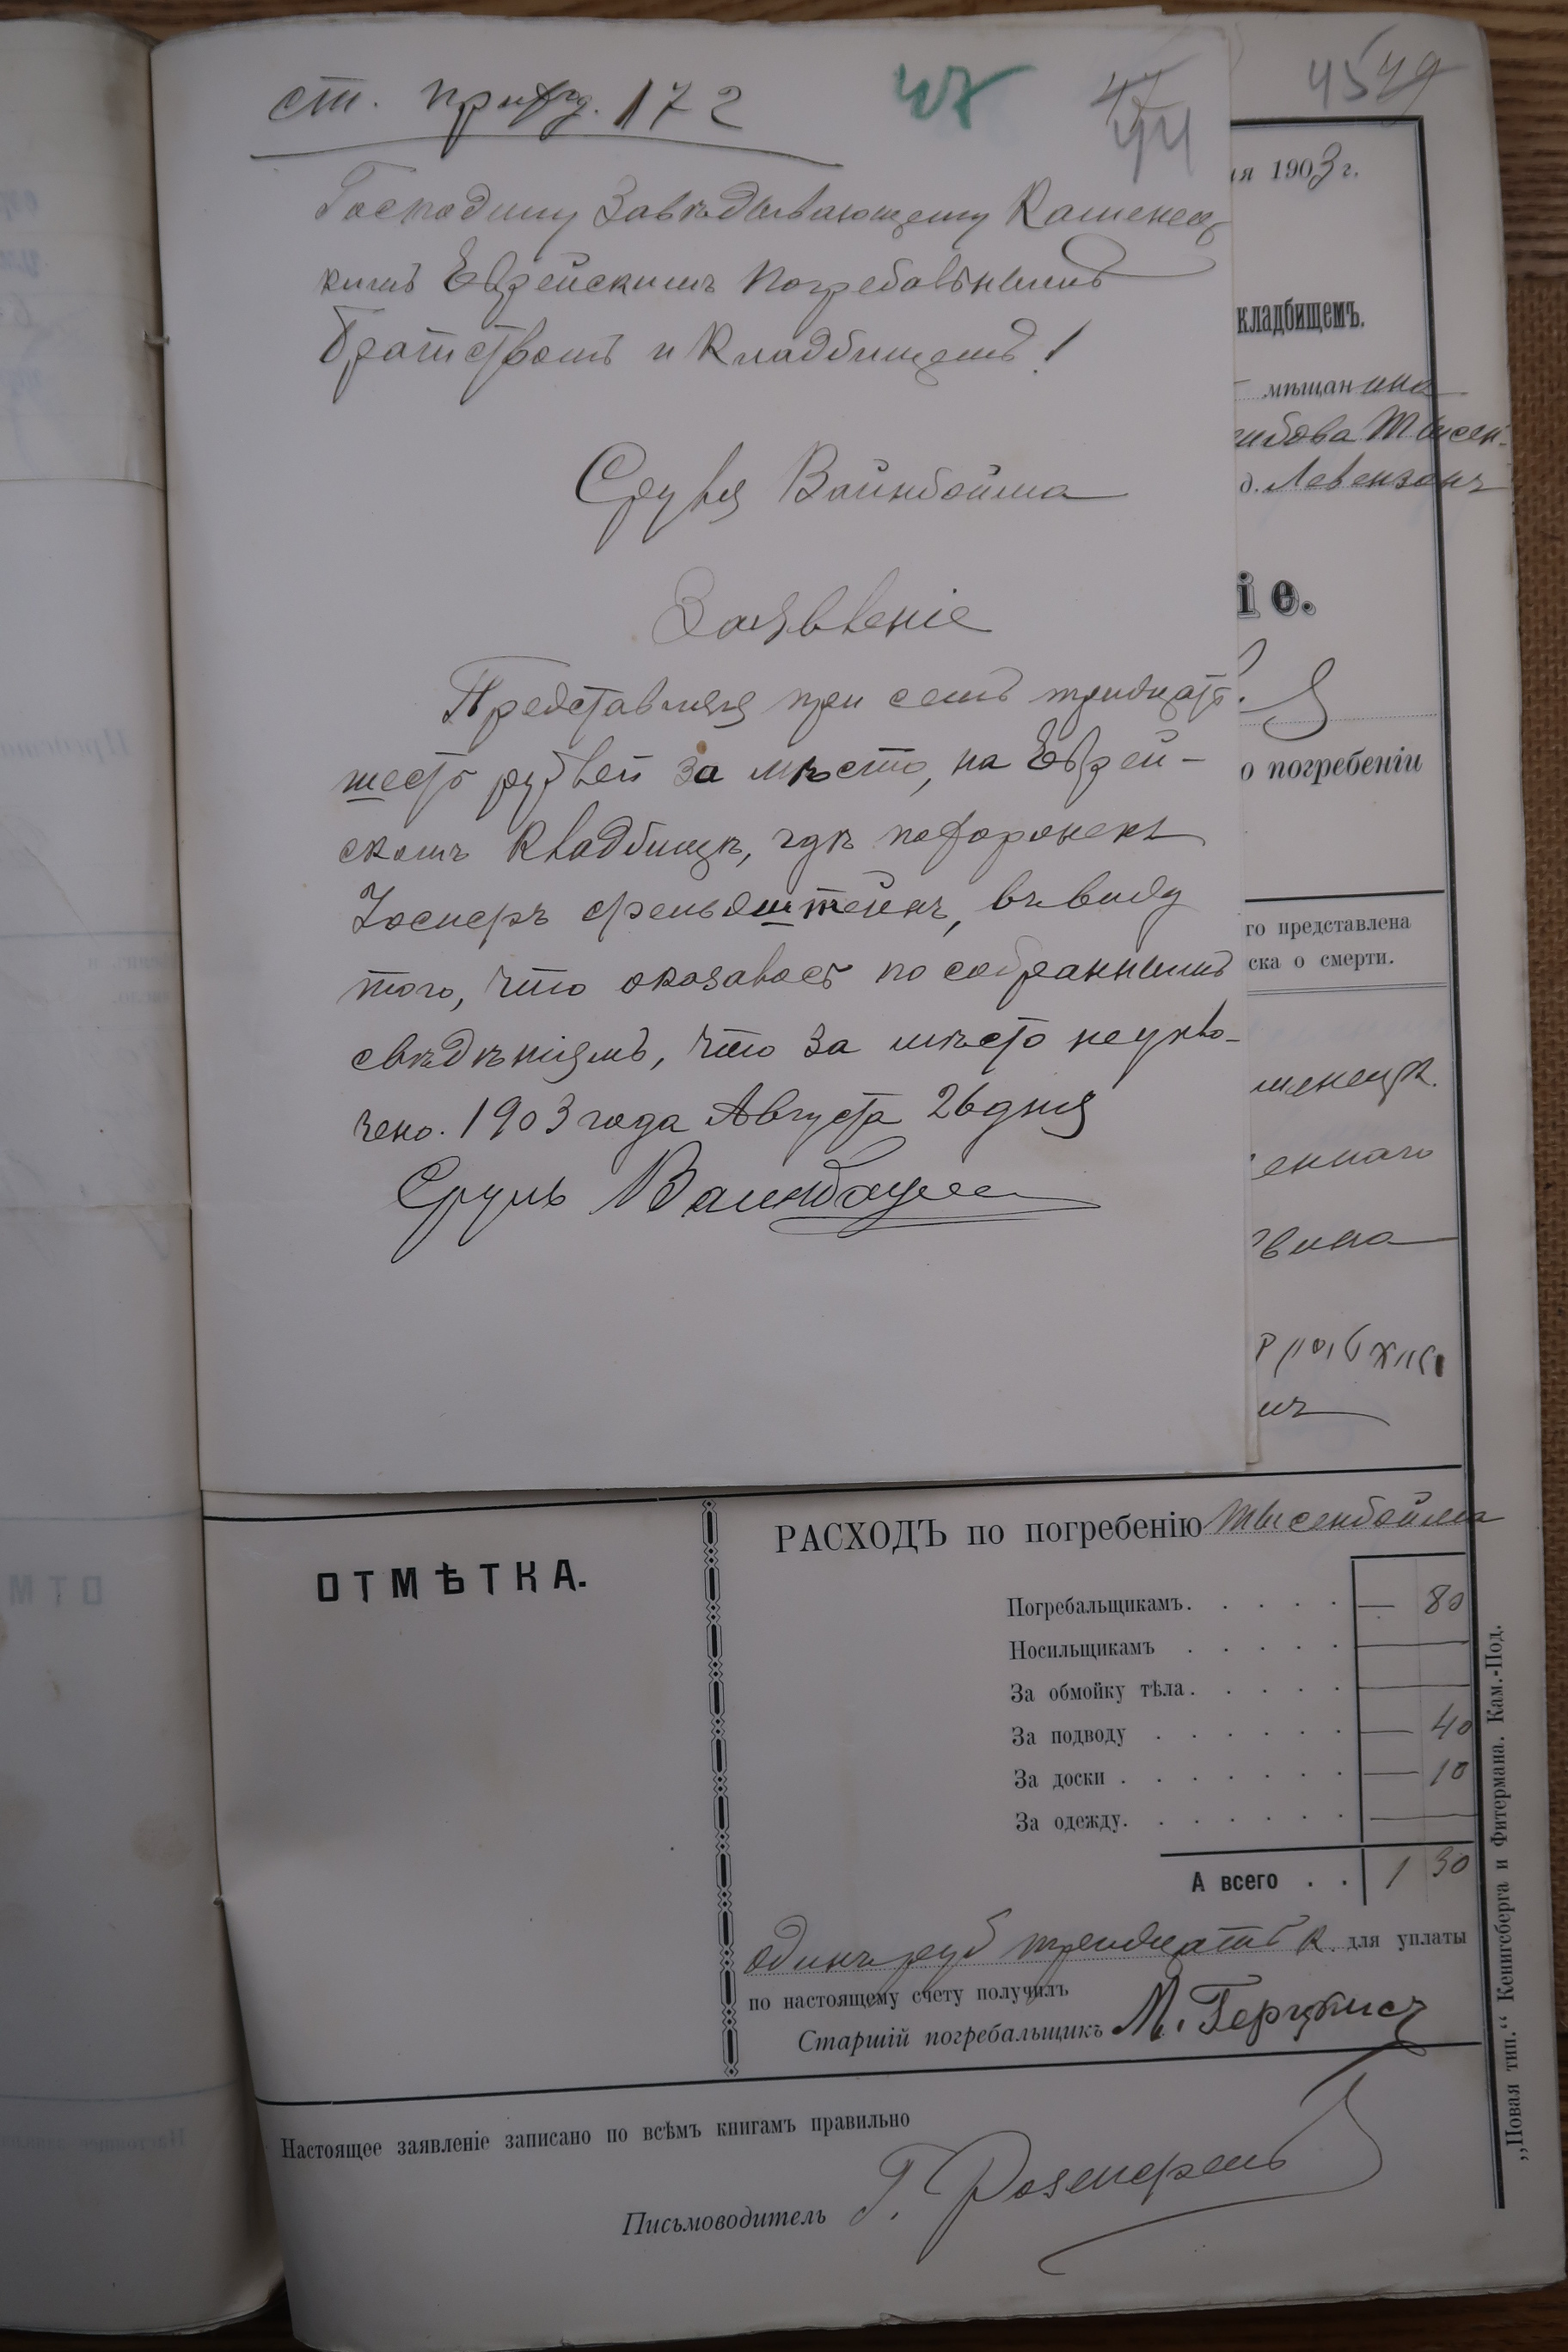 ст. приход. 172
47
47
44
45 49
Господину Завѣдывающему Каменец
кимъ Еврейскимъ Погребальнымъ
братствомъ и Кладбищемъ!
Сруля Вайнбойма
Заявленіе
Представляя при семъ тридцать
шесть рублей за мѣсто, на Еврей-
скомъ кладбищѣ, гдѣ похороненъ
Іосифъ Френдштейнъ, въ виду
того, что оказалось по собраннымъ
свѣдѣніямъ, что за мѣсто неупло-
чено. 1903 года Августа 26 дня
Сруль Ваинбоум
ія 1903 г.
кладбищемъ.
мѣщанина
Тисен-
д. Левензонъ
іе.
о погребеніи
го представлена
ска о смерти.
менецк.
еннаго
вина
инъ
ОТМѢТКА.
РАСХОДЪ по погребенію Тисенбойма
Погребальщикамъ. — 80
Носильщикамъ —
За обмойку тѣла. —
За подводу — 40
За доски — 10
За одежду. —
А всего 1 30
одинъ руб тридцать к. для уплаты
по настоящему счету получилъ
Старшій погребальщикъ М. Герцкисъ
Настоящее заявленіе записано по всѣмъ книгамъ правильно
Письмоводитель Г. Розенфельд
„Новая тип.“ Кенигсберга и Фитермана. Кам.-Под.